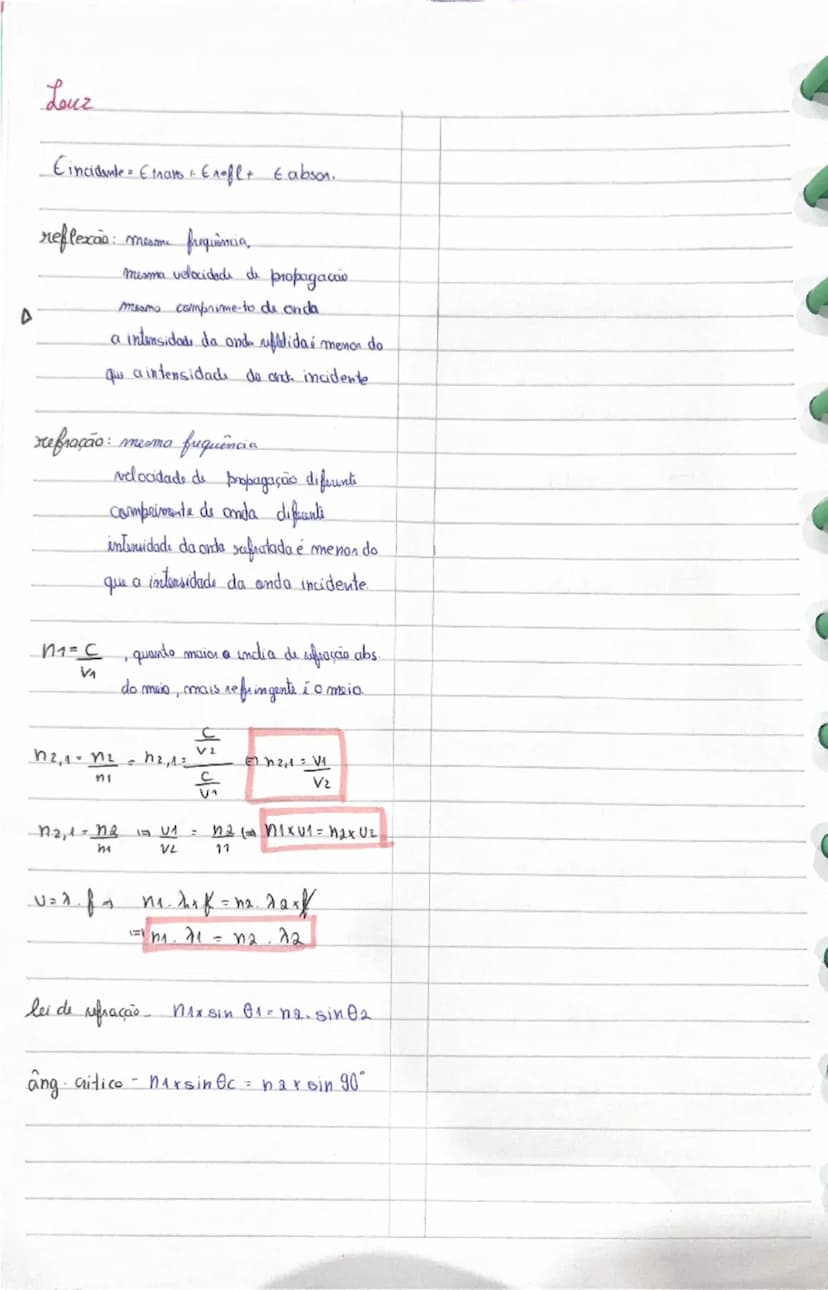 Luz
Eincidente = Etrans + Erefl + Eabsor.
reflexão: mesma frequência,
mesma velocidade de propagação
mesmo comprimento de onda
a intensidade da onda refletida é menor do
que a intensidade da onda incidente
refração: mesma frequência
velocidade de propagação diferente
comprimento de onda diferente
intensidade da onda refratada é menor do
que a intensidade da onda incidente.
n1 = C/V1, quanto maior o índice de refração abs.
do meio, mais refringente é o meio
n2,1 = n2/n1 = n2,1 = (C/V2)/(C/V1) ⇔ n2,1 = V1/V2
n2,1 = n2/n1 ⇒ V1/V2 = n2/n1 ⇔ n1 x V1 = n2 x V2
v = λ . f ⇒ n1 . λ1 x f = n2 . λ2 x f
⇒ n1 . λ1 = n2 . λ2
lei de refração - n1 x sin θ1 = n2 . sin θ2
âng. crítico - n1 x sin θc = n2 x sin 90°